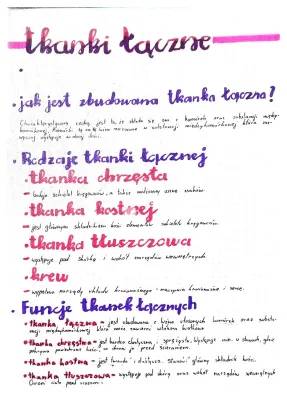 tkanki łączne
• jak jest zbudowana tkanka łączna?
Charakterystyczną cechą jest to, że składa się ona z komórek oraz substancji między-
komórkowej. Komórki są w substancji międzykomórkowej, która
występuje
• Rodzaje tkanki łącznej
• tkanka chrzęstna
- buduje szkielet kręgowców, a także małżowiny uszne ssaków.
• tkanka kostnej
- jest głównym składnikiem kości elementów szkieletu kręgowców.
• tkanka tłuszczowa
- występuje pod skórą i wokół narządów wewnętrznych.
• krew
- wypełnia narządy układu krwionośnego - naczynia krwionośne i serce.
• Funcje tkanek łącznych
• tkanka łączna - jest zbudowana z luźno ułożonych komórek oraz substan-
cji międzykomórkowej która może zawierać włókna białkowe
• tkanka chrzęstna - jest bardzo elastyczna i sprężysta, występuje m.in. w stawach, gdzie
pokrywa powierzchnie kości, chroni je przed ścieraniem.
• tkanka kostna - jest twarda i Stanowi główny składnik kości.
• tkanka tłuszczowa - występuje pod skórą oraz wokół narządów wewnętrznych
Chroni ciało pod